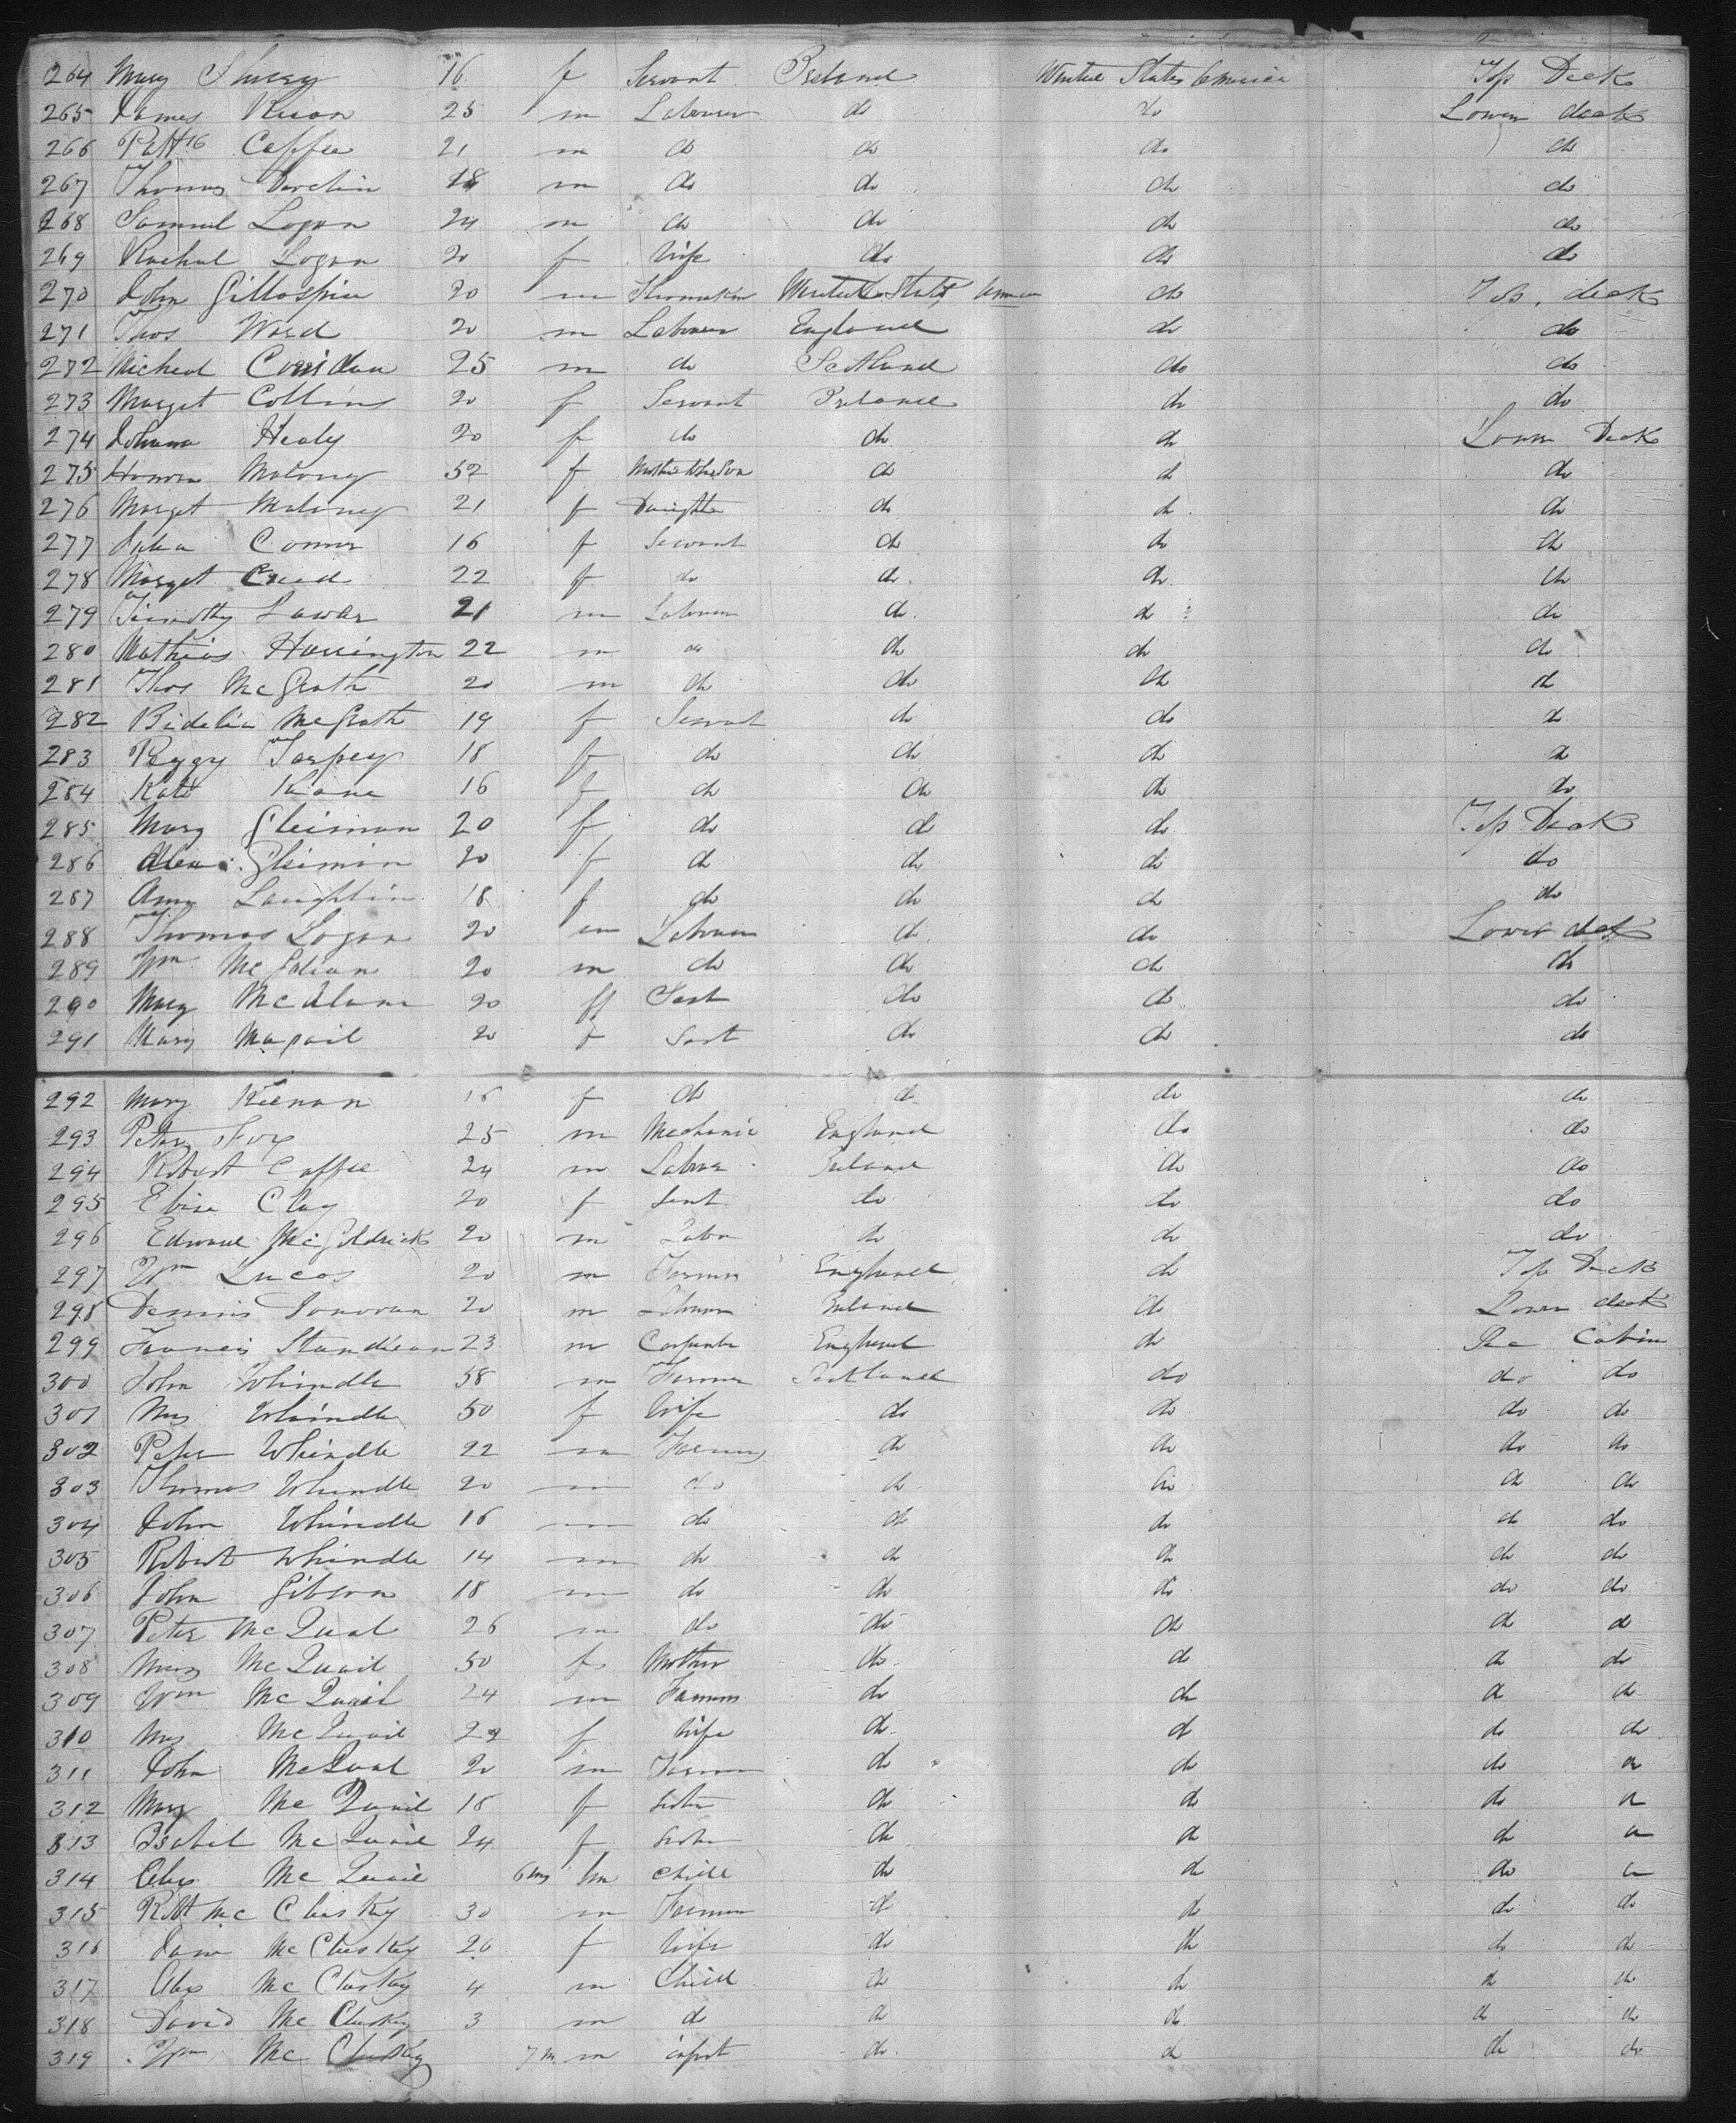 264 Mary 16 f Servant Ireland United States America Top Deck
265 James 25 m Labourer do do Lower deck
266 Patt Caffee 21 m do do do do
267 Thomas Devlin 18 m do do do do
268 Samuel Logan 24 m do do do do
269 Rachel Logan 20 f Wife do do do
270 John Gillospie 20 m Shomaker United States do Top deck
271 Thos Ward 20 m Labourer England do do
272 Micheal Corridan 25 m do Scotland do do
273 Marget Collins 20 f Servant Ireland do do
274 Johana Healy 20 f do do do Lower Deck
275 Honora Malony 52 f do do do
276 Marget Malony 21 f Daughter do do do
277 Julia Connor 16 f Servant do do do
278 Marget Creed 22 f do do do do
279 Timothy Lawler 21 m Labourer do do do
280 Mathias Harrington 22 m do do do do
281 Thos McGrath 20 m do do do do
282 Bidelia McGrath 19 f Servant do do do
283 Peggy Tarpey 18 f do do do do
284 Kate Kane 16 f do do do do
285 Mary Gleiman 20 f do do do Top Deck
286 Gleiman 20 f do do do do
287 Ann Laughlin 18 f do do do do
288 Thomas Logan 20 m Labourer do do Lower deck
289 Wm 20 m do do do do
290 Mary 20 f do do do
291 Mary 20 f do do do
292 Mary Keenan 16 f do do do do
293 Peter Fox 25 m Mechanic England do do
294 Robert Caffee 24 m Labour Ireland do do
295 Eliza Clay 20 f do do do
296 Edward McGoldrick 20 m Labor do do do
297 Wm Lucas 20 m Farmer England do Top Deck
298 Dennis Donovan 20 m Labourer Ireland do Lower deck
299 Francis 23 m Carpenter England do Sec Cabin
300 John Whindle 58 m Farmer Scotland do do do
301 Mrs Whindle 50 f Wife do do do do
302 Peter Whindle 22 m Farmer do do do do
303 Thomas Whindle 20 m do do do do do
304 John Whindle 16 m do do do do do
305 Robert Whindle 14 m do do do do do
306 John Gibson 18 m do do do do do
307 Peter McQuail 26 m do do do do do
308 Mary McQuail 50 f Mother do do do do
309 Wm McQuail 24 m Farmer do do do do
310 Mrs McQuail 22 f Wife do do do do
311 John McQuail 20 m Farmer do do do do
312 Mary McQuail 18 f Sister do do do do
313 Isabel McQuail 24 f Sister do do do do
314 Alex McQuail 6 ms m Child do do do do
315 Robt McCluskey 30 m Farmer do do do do
316 Jane McCluskey 26 f Wife do do do do
317 Alex McCluskey 4 m Child do do do do
318 David McCluskey 3 m do do do do do
319 Wm McCluskey 7 m m infant do do do do